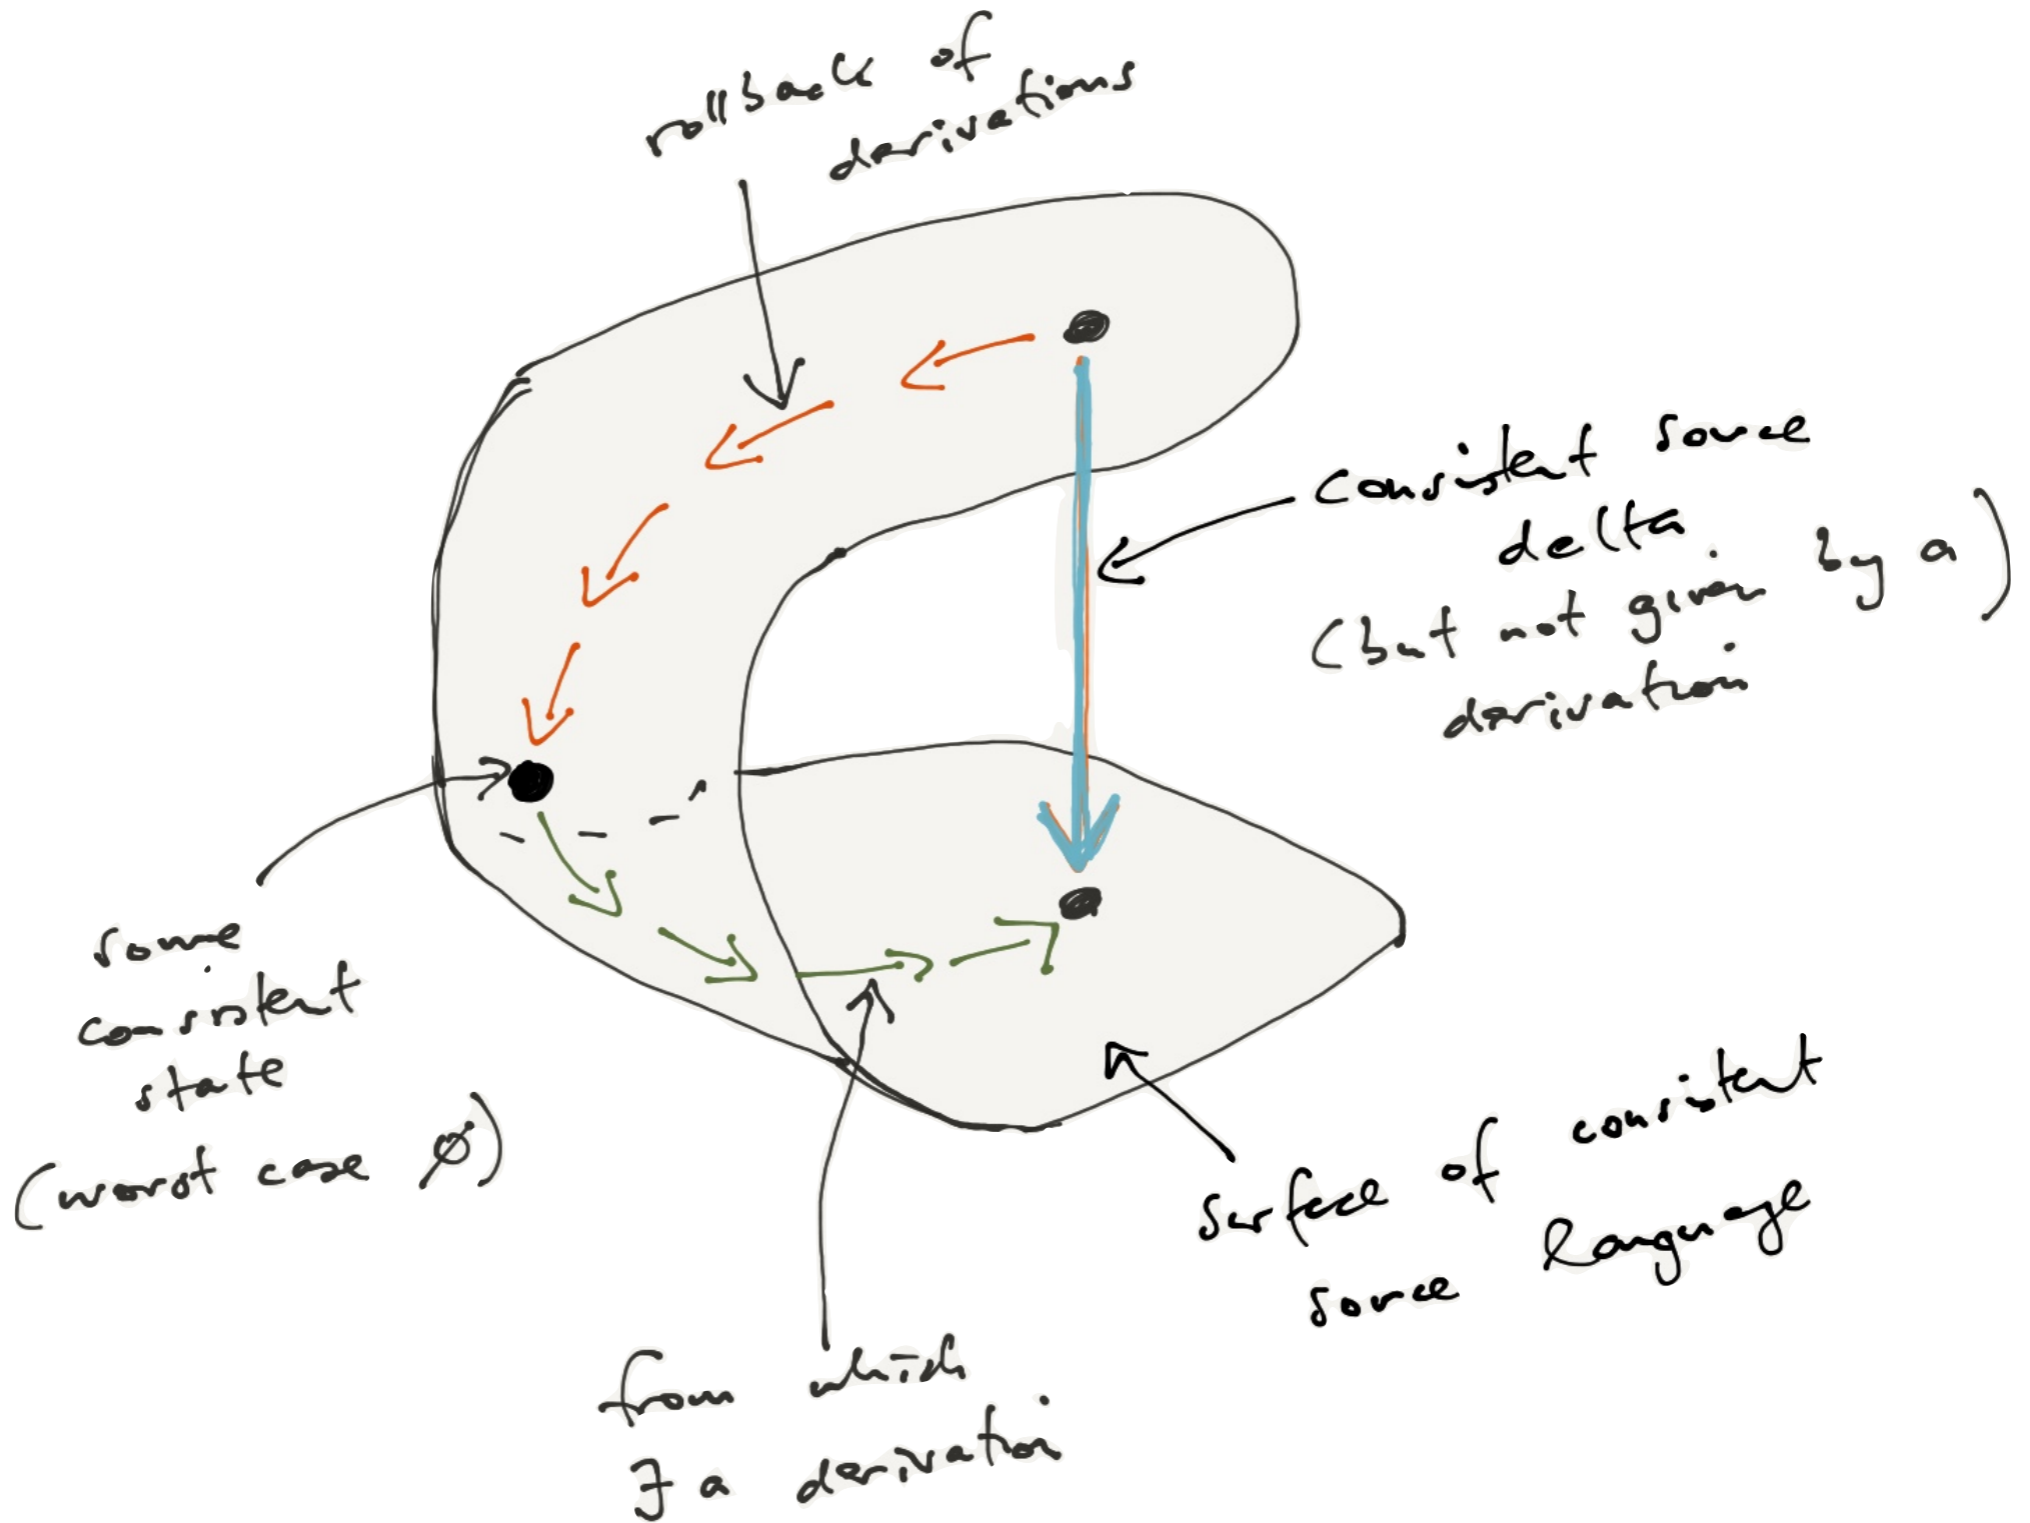 rollback of
derivations
consistent source
delta
(but not given by a)
derivation
some
consistent
state
(worst case ∅)
surface of consistent
source language
from which
∃ a derivation